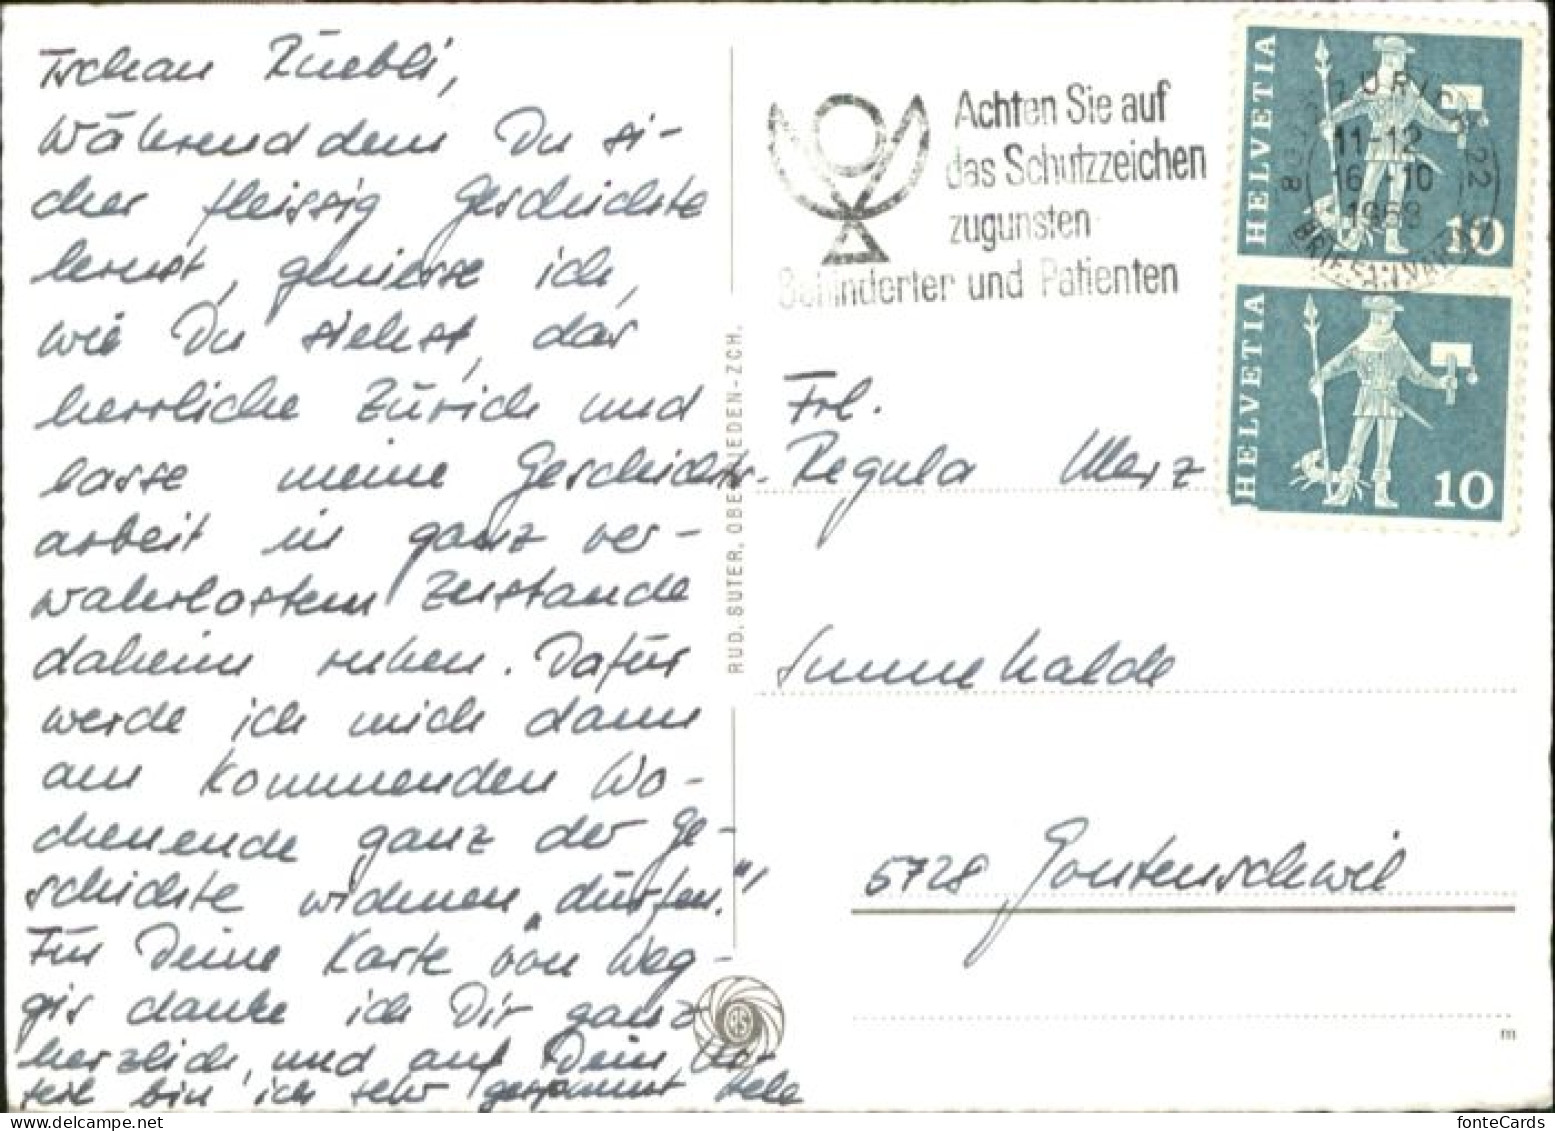 Tschau Rüebli,
Währenddem Du si-
cher fleissig Geschichte
lernst, geniesse ich,
wie Du siehst, das
herrliche Zürich und
lasse meine Geschichts-
arbeit in ganz ver-
wahrlostem Zustande
daheim ruhen. Dafür
werde ich mich dann
am kommenden Wo-
chenende ganz der Ge-
schichte widmen „dürfen."!
Für Deine Karte von Weg-
gis danke ich Dir ganz
herzlich, und auf Dein Ur-
teil bin ich sehr gespannt
RUD. SUTER, OBERRIEDEN-ZCH.
RS
Achten Sie auf
das Schutzzeichen
zugunsten
Behinderter und Patienten
ZÜRICH 22
11-12
16.-10
1969
BRIEFANNAHME
HELVETIA
10
HELVETIA
10
Frl.
Regula Merz
Sunnehalde
5728 Gontenschwil
m
fonteCards